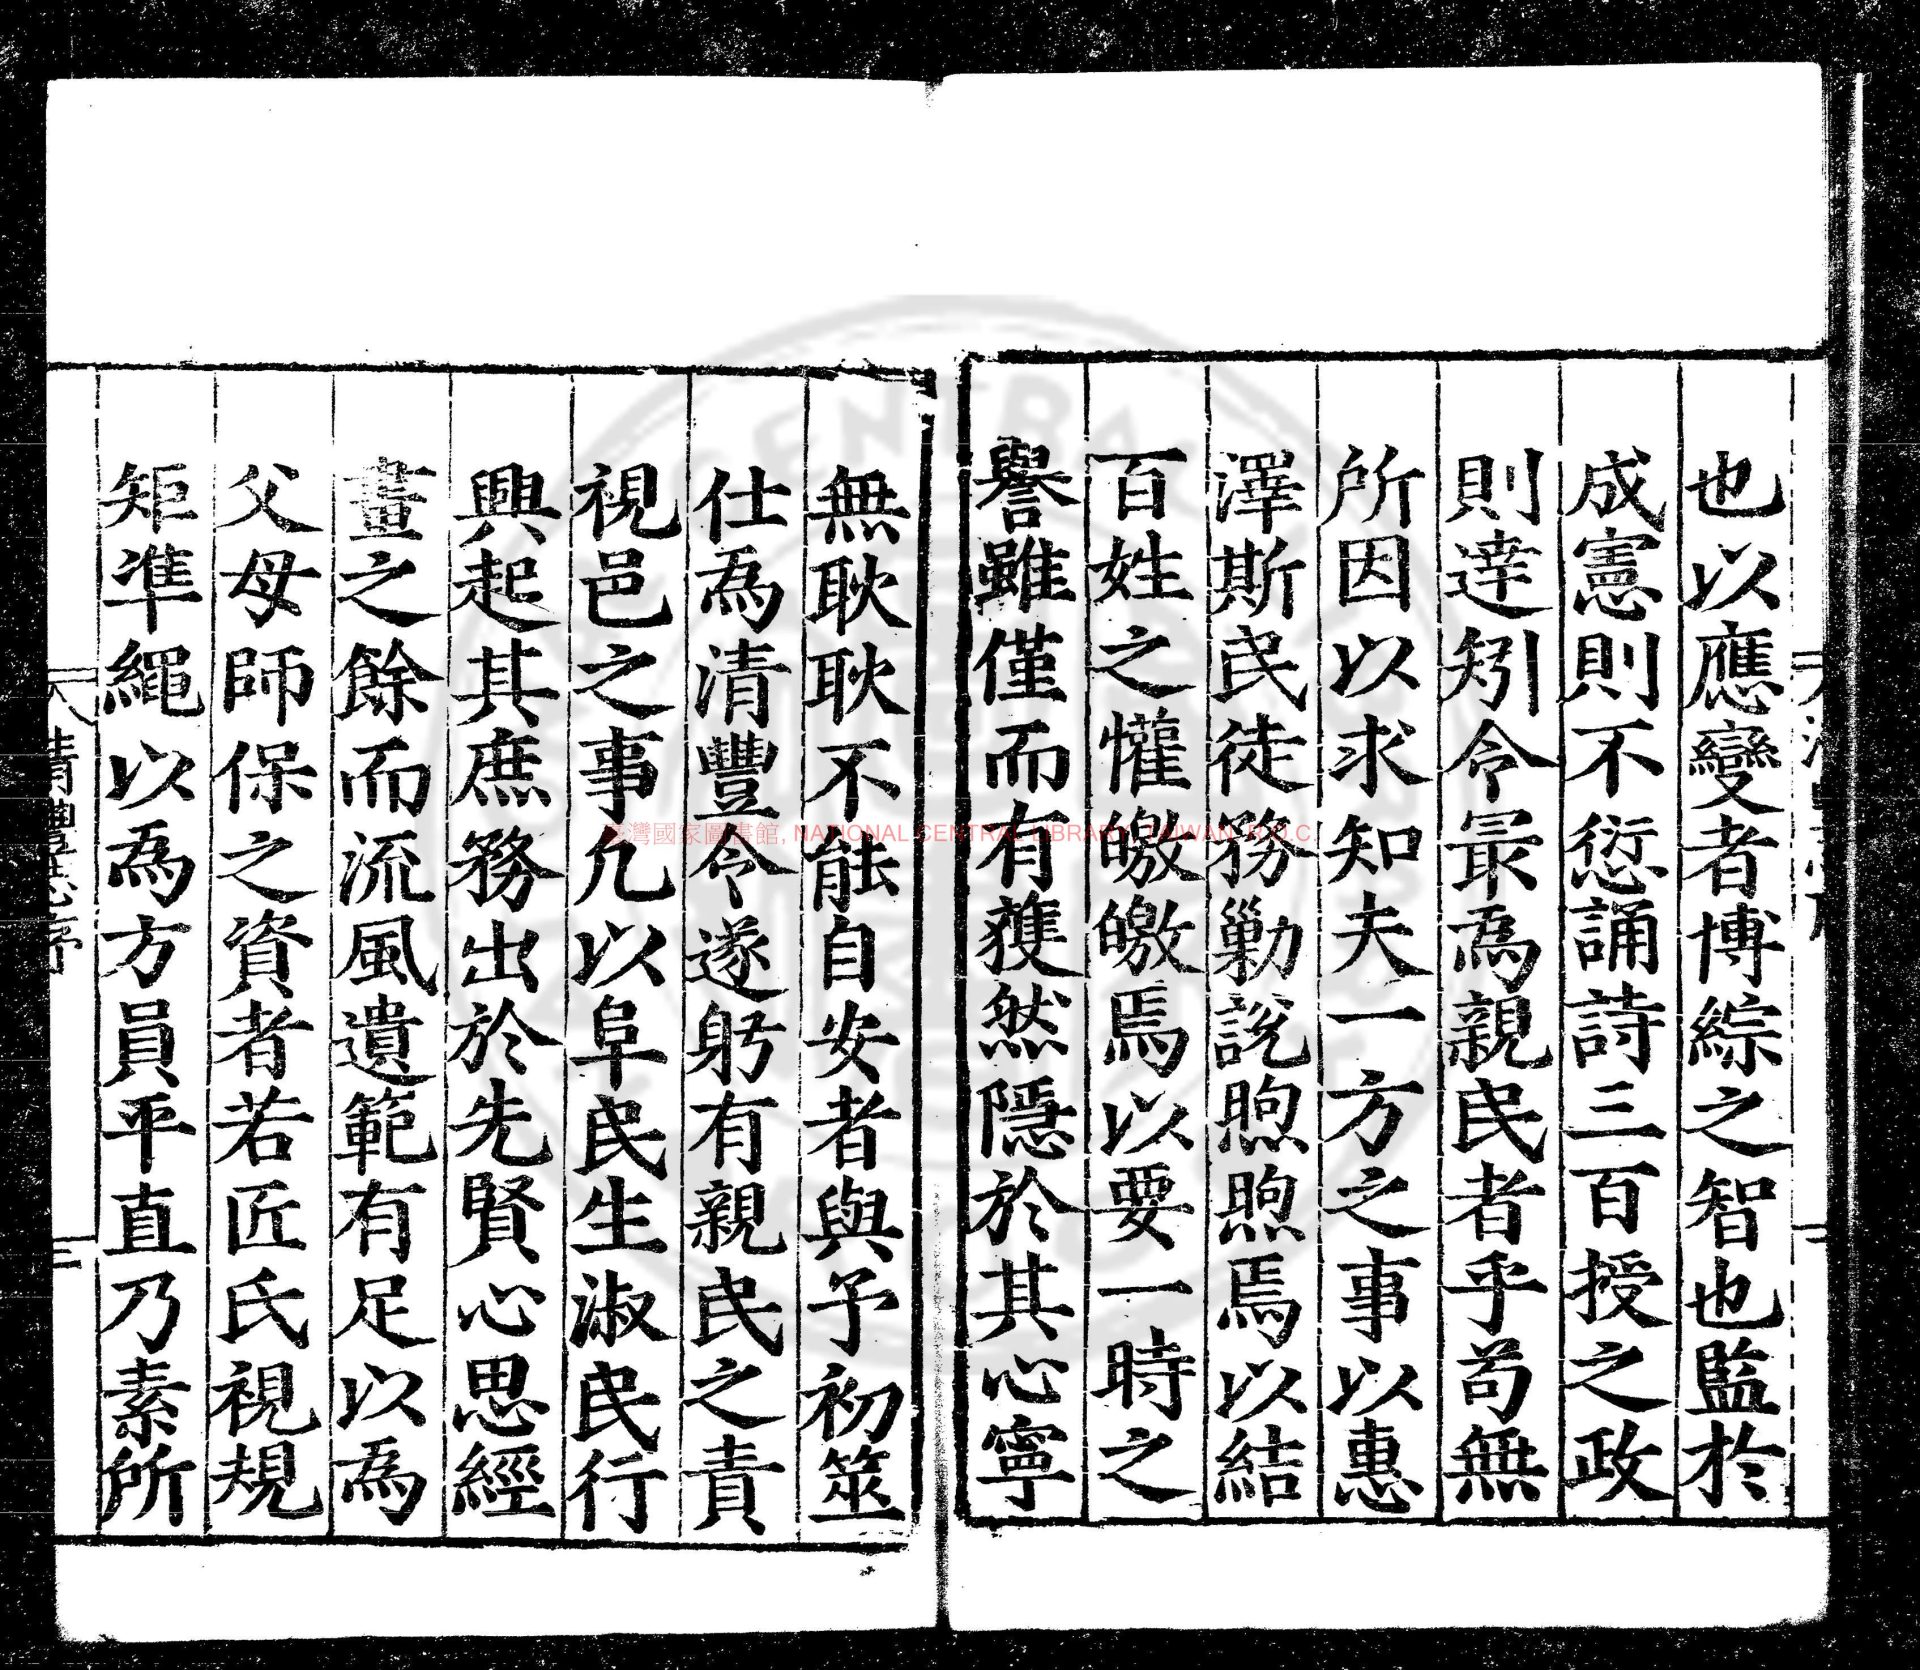 也以應變者博綜之智也監於
成憲則不愆誦詩三百授之政
則達矧令最為親民者乎苟無
所因以求知夫一方之事以惠
澤斯民徒務勦説煦煦焉以結
百姓之懽皦皦焉以要一時之
譽雖僅而有獲然隱於其心寧
無耿耿不能自安者與予初筮
仕為清豐令遂躬有親民之責
視邑之事凡以阜民生淑民行
興起其庶務出於先賢心思經
畫之餘而流風遺範有足以為
父母師保之資者若匠氏視規
矩準繩以為方員平直乃素所
清豐縣志序
三
臺灣國家圖書館, NATIONAL CENTRAL LIBRARY, TAIWAN, R.O.C.